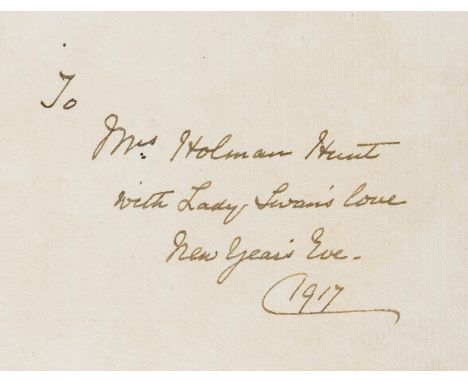 To
Mrs. Holman Hunt
with Lady Swan's love
New Year's Eve.
1917